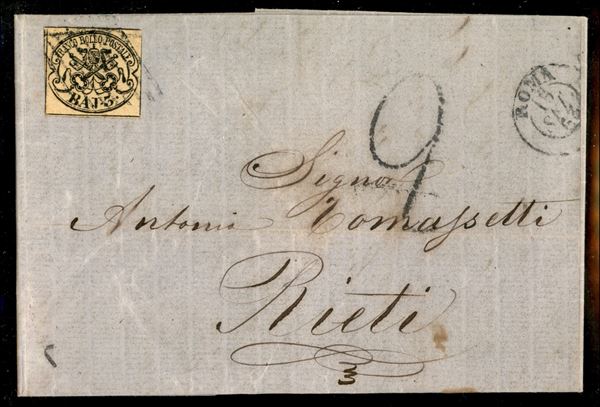 FRANCO BOLLO POSTALE
BAJ. 5.
ROMA
9
Signor
Antonio Tomassetti
Rieti
3